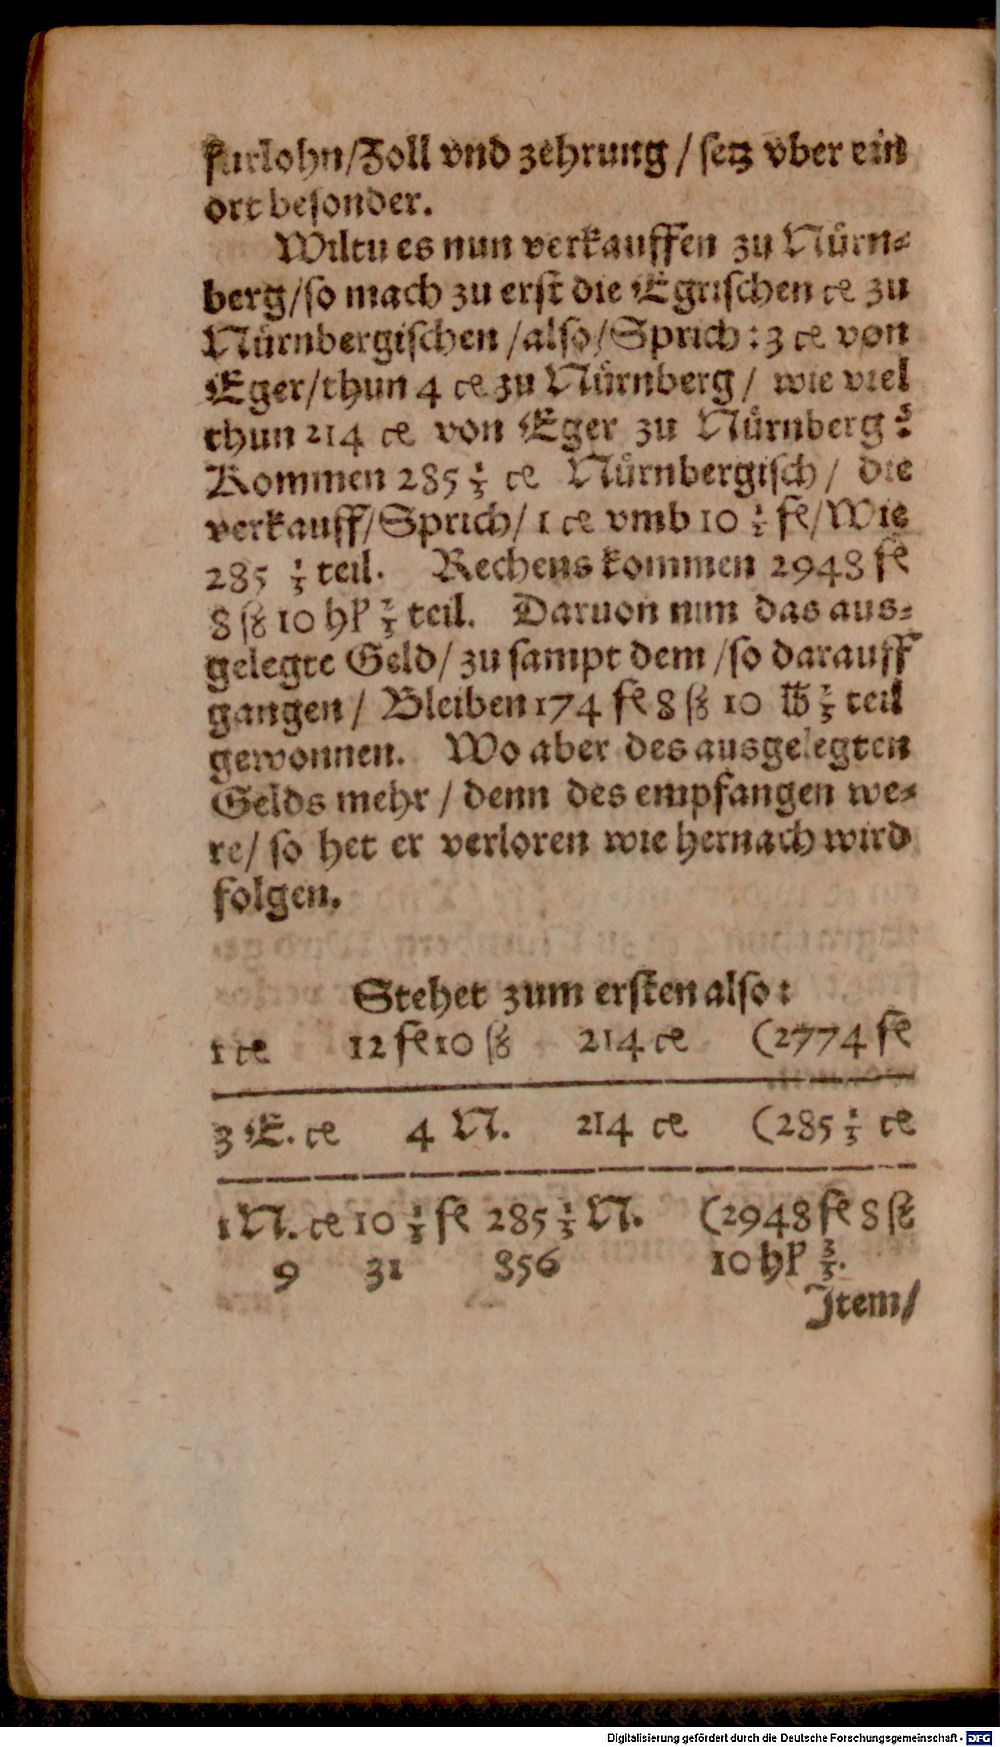 furlohn/Zoll vnd zehrung / setz vber ein
ort besonder.
Wiltu es nun verkauffen zu Nürn-
berg/so mach zu erst die Egrischen ce zu
Nürnbergischen /also/Sprich: 3 ce von
Eger/thun 4 ce zu Nürnberg / wie viel
thun 214 ce von Eger zu Nürnberg?
Kommen 285 1/3 ce Nürnbergisch / die
verkauff/Sprich/ 1 ce vmb 10 1/3 fl/Wie
285 1/3 teil. Rechens kommen 2948 fl
8 ß 10 hl 2/3 teil. Daruon nim das aus-
gelegte Geld/ zu sampt dem /so darauff
gangen / Bleiben 174 fl 8 ß 10 lb 2/3 teil
gewonnen. Wo aber des ausgelegten
Gelds mehr / denn des empfangen we-
re/ so het er verloren wie hernach wird
folgen.
Stehet zum ersten also:
1 ce 12 fl 10 ß 214 ce (2774 fl
3 E. ce 4 N. 214 ce (285 1/3 ce
1 N. ce 10 1/3 fl 285 1/3 N. (2948 fl 8 ß
9 31 856 10 hl 2/3.
Item/
Digitalisierung gefördert durch die Deutsche Forschungsgemeinschaft - DFG